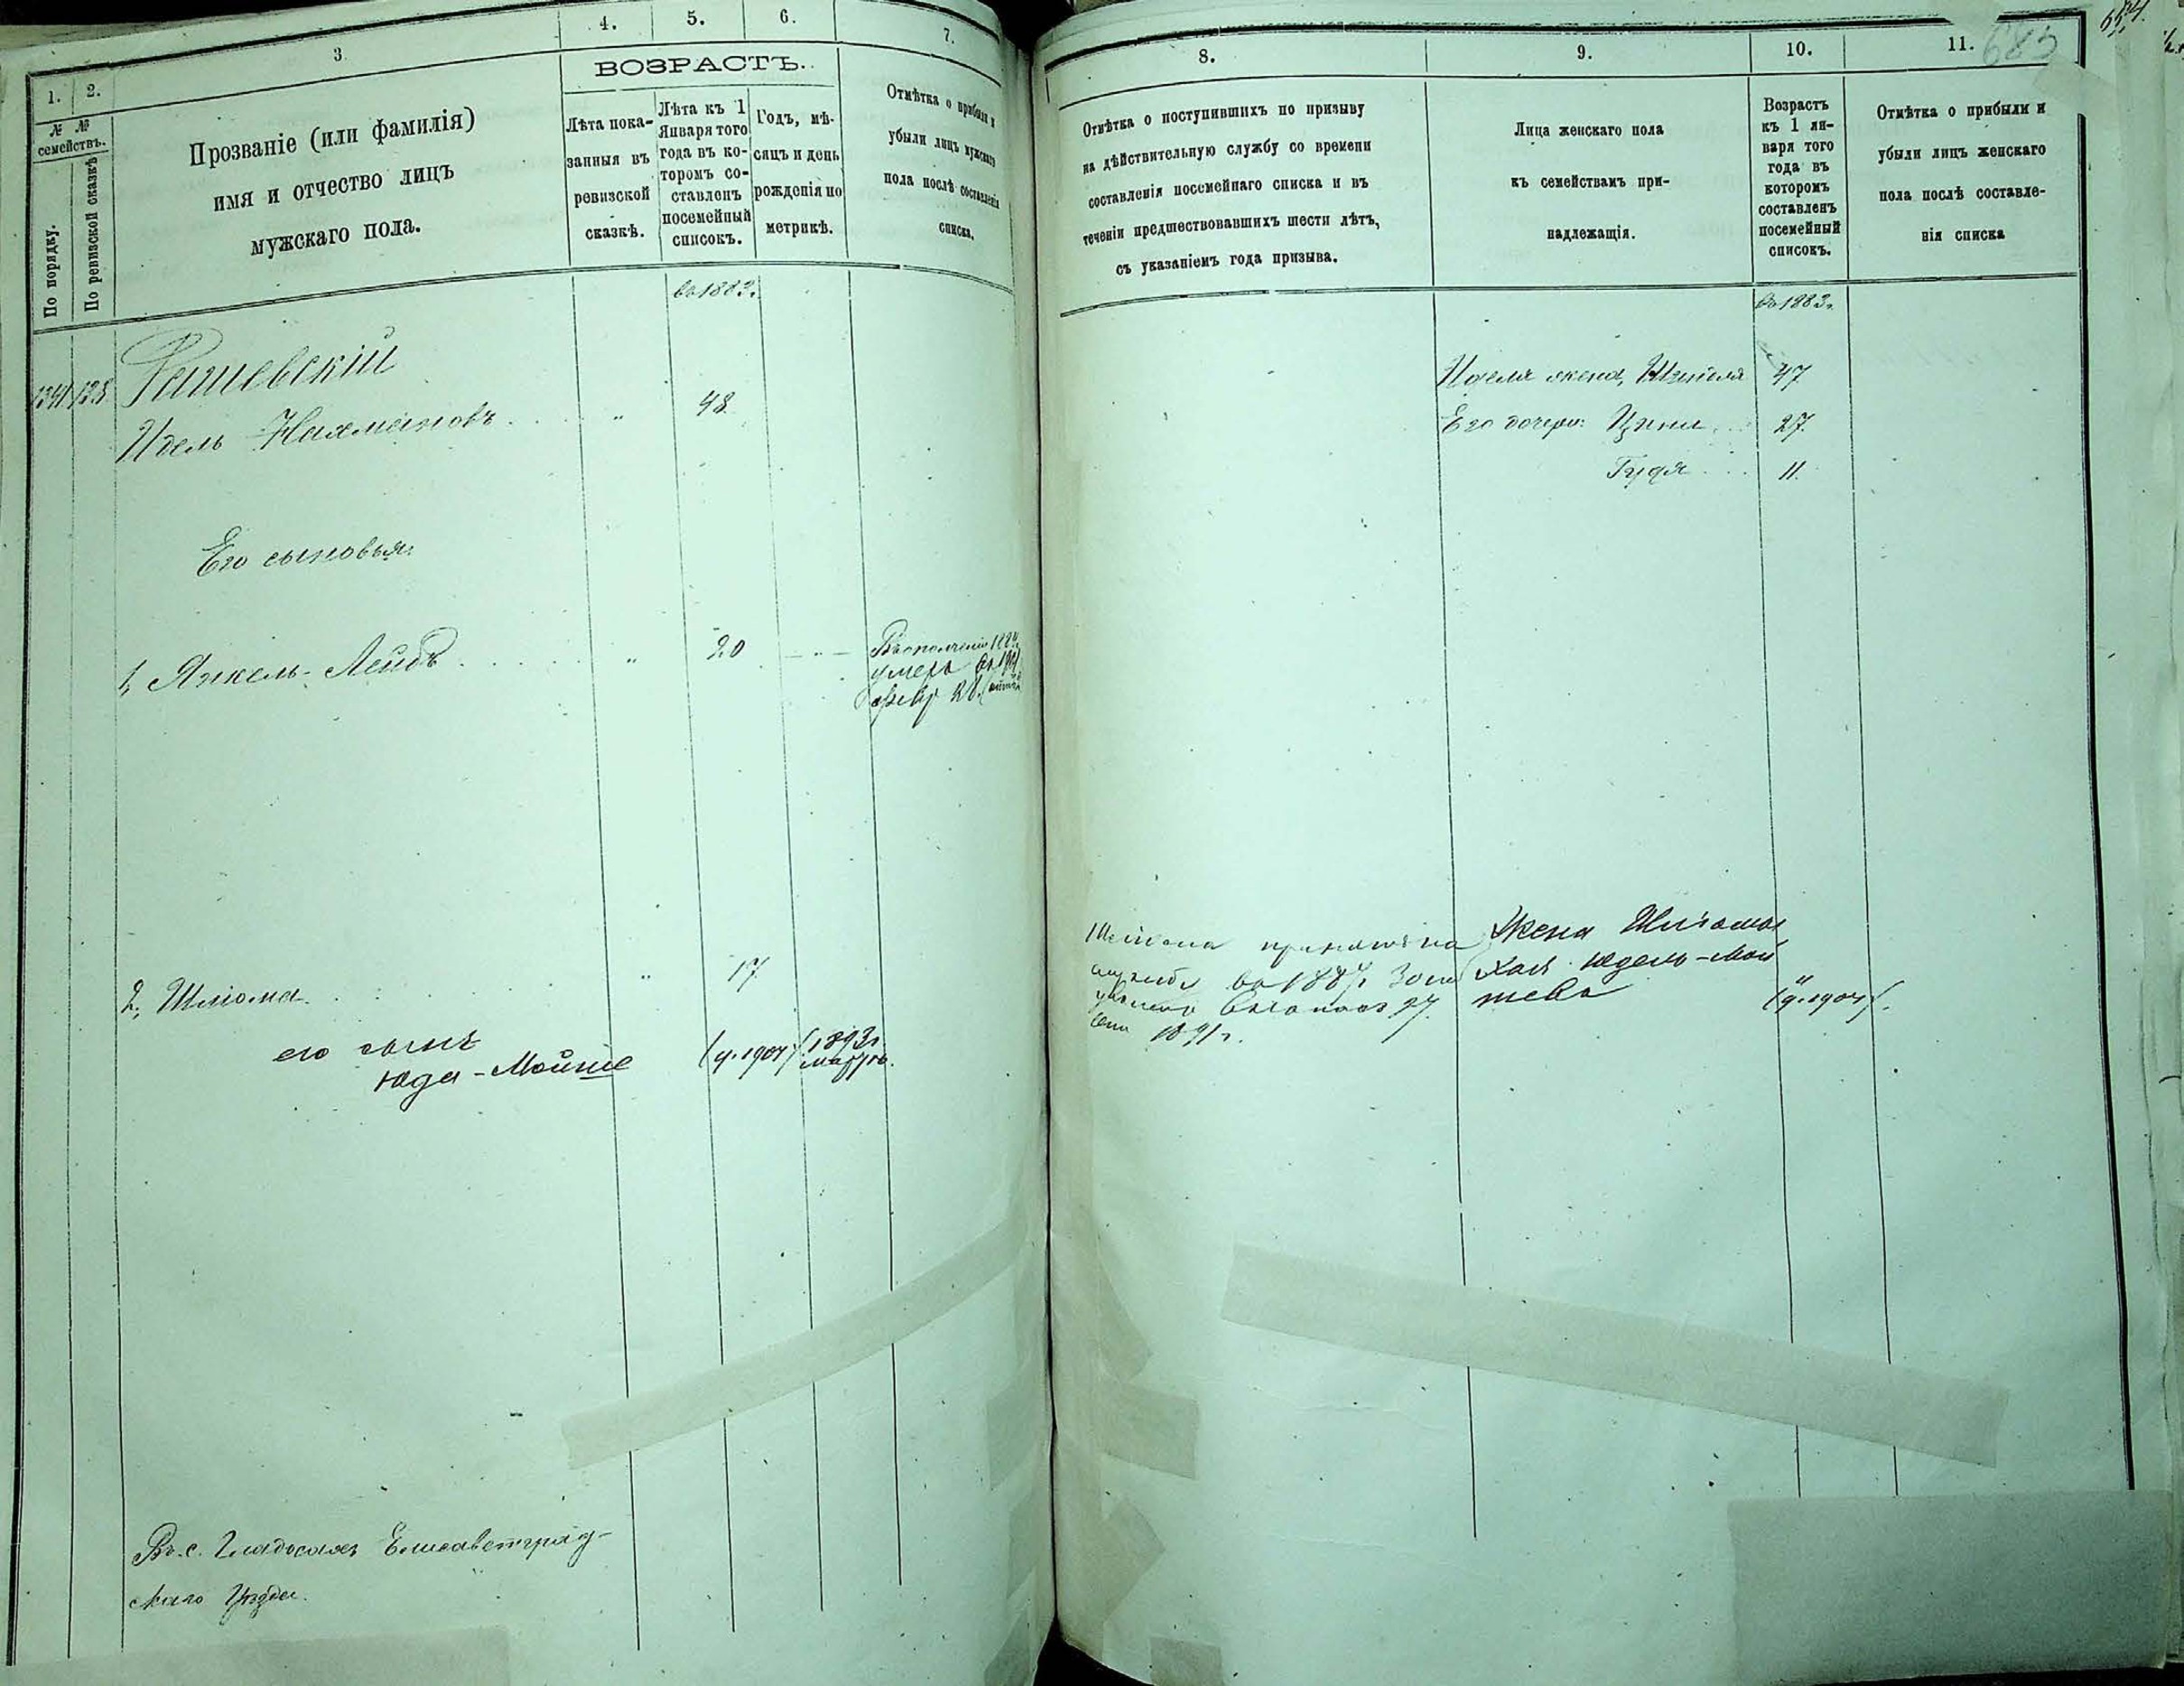 1.
2.
3
4.
5.
6.
7.
№ №
семействъ.
По порядку.
По ревизской сказкѣ
Прозваніе (или фамилія)
имя и отчество лицъ
мужскаго пола.
ВОЗРАСТЪ.
Лѣта пока-
занныя въ
ревизской
сказкѣ.
Лѣта къ 1
Января того
года въ ко-
торомъ со-
ставленъ
посемейный
списокъ.
Годъ, мѣ-
сяцъ и день
рожденія по
метрикѣ.
Отмѣтка о прибыли и
убыли лицъ мужскаго
пола послѣ составленія
списка.
въ 1883г.
Рашевскій
Идель Нахмановъ . . . " 48.
Его сыновья:
1, Янкель-Лейбъ . . . . " 20 — " —
умеръ въ
2, Шліома . . . . . " 17
его сынъ
Юда-Мойше (ч. 1904) 1893г
Въ с. Гладосахъ Елисаветград-
скаго Уѣзда.
8.
9.
10.
11.
685
Отмѣтка о поступившихъ по призыву
на дѣйствительную службу со времени
составленія посемейнаго списка и въ
теченіи предшествовавшихъ шести лѣтъ,
съ указаніемъ года призыва.
Лица женскаго пола
къ семействамъ при-
надлежащія.
Возрастъ
къ 1 ян-
варя того
года въ
которомъ
составленъ
посемейный
списокъ.
Отмѣтка о прибыли и
убыли лицъ женскаго
пола послѣ составле-
нія списка
въ 1883г.
Иделя жена, 47
Его дочери: Ципа . . 27.
Гудя . . . 11.
Шліома принятъ на
службу въ 1887г
1891г.
Жена Шліомы
Хая Юдель-Мой
шева
(ч. 1904).